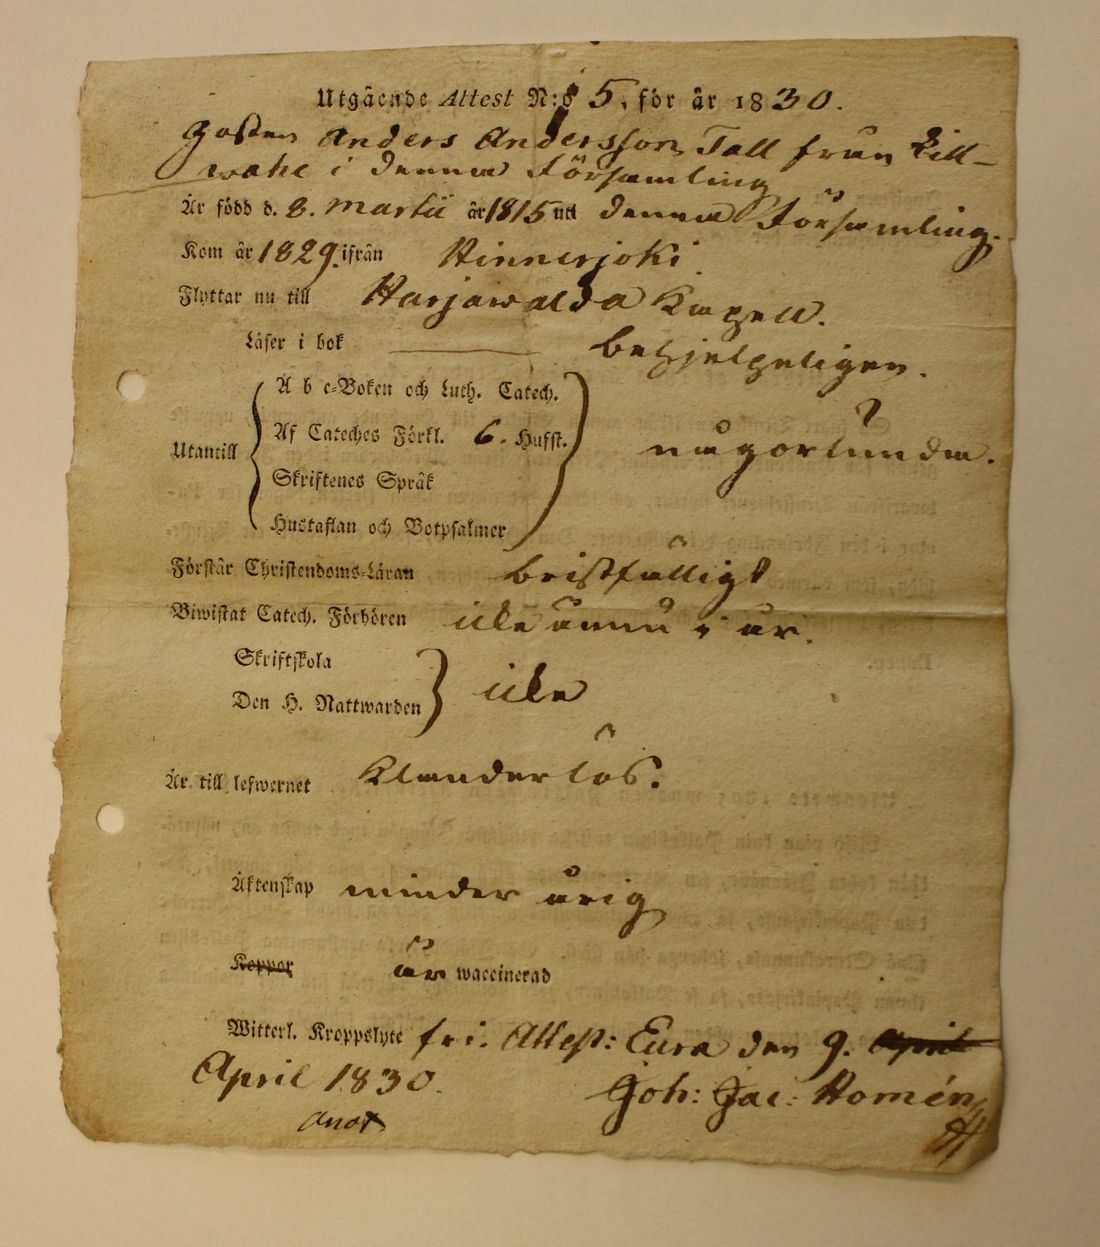 Utgående Attest N:o 5, för år 1830.
Gossen Anders Andersson Tall från Kill-
wahe i denna Församling
Är född d. 8. Martii år 1815 uti denna Församling.
Kom år 1829. ifrån Hinnerjoki
Flyttar nu till Harjawalda Kapell.
Läser i bok behjelpeligen.
A b c-Boken och Luth. Catech.
Utantill Af Cateches Förkl. 6. Hufst. någorlunda.
Skriftenes Språk
Hustaflan och Botpsalmer
Förstår Christendoms-Läran bristfälligt
Biwistat Catech. Förhören icke ännu i år.
Skriftskola
Den H. Nattwarden icke
Är till lefwernet Klanderlös.
Äktenskap minder årig
Koppor är waccinerad
Witterl. Kroppslyte fri. Attest: Eura den 9. April
April 1830. Joh: Jac: Homén